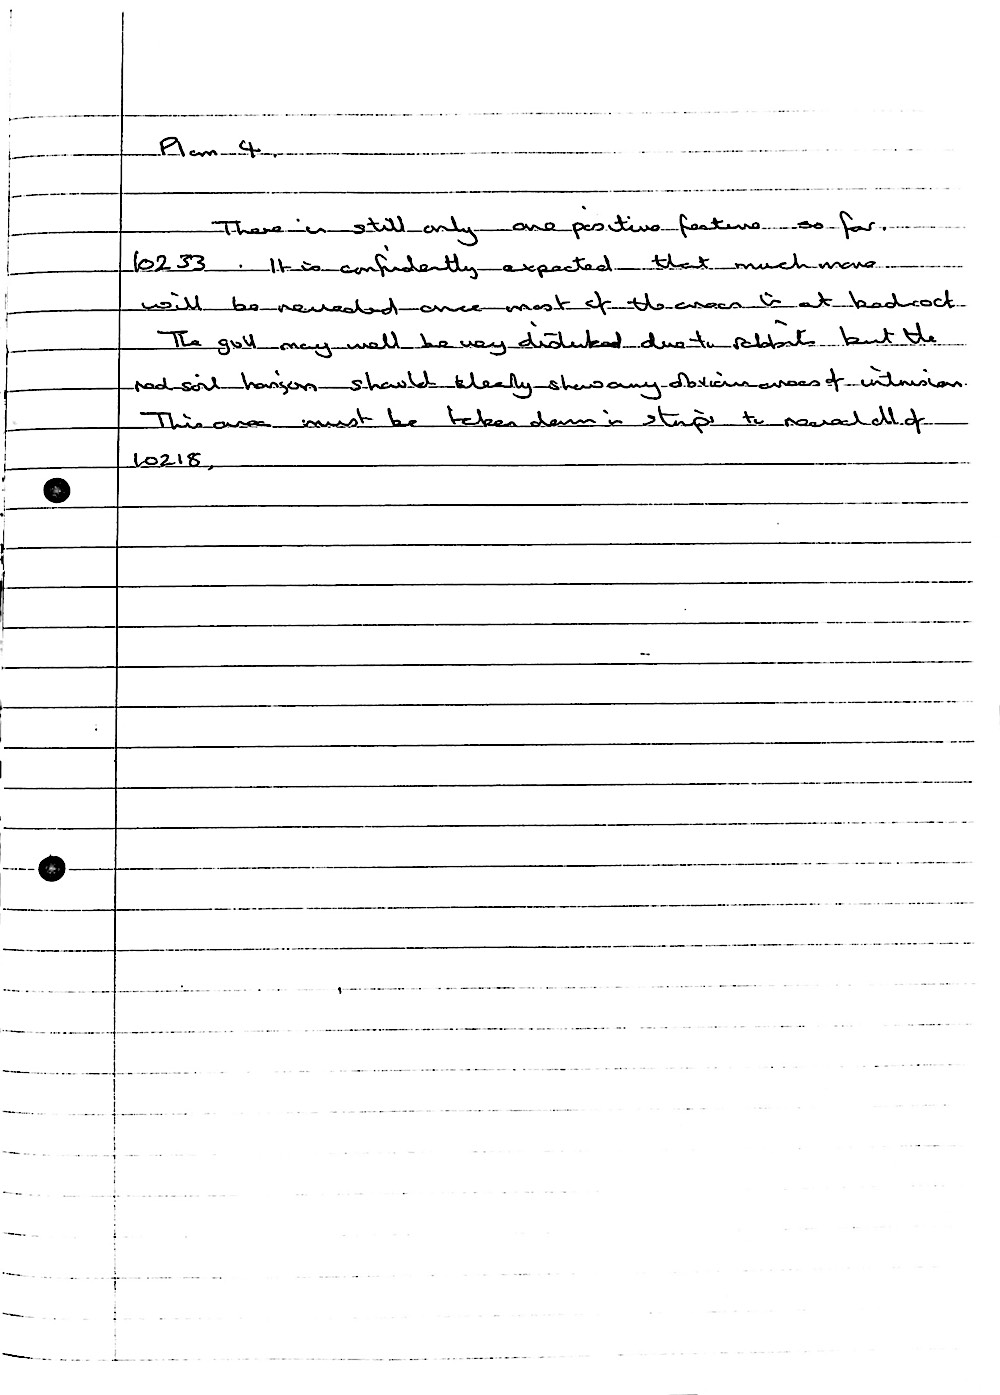 Plan 4.
There is still only one positive feature so far.
10233. It is confidently expected that much more
will be revealed once most of the area is at bedrock
The gull may well be very disturbed due to rabbits but the
red soil horizon should clearly show any obvious areas of intrusion.
This area must be taken down in strips to reveal all of
10218.